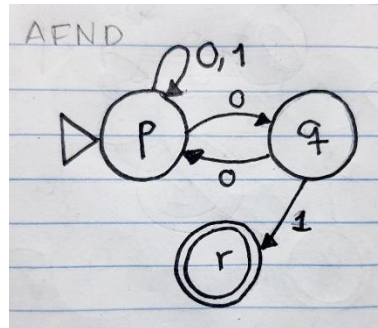 AFND
0,1
0
p
q
0
1
r